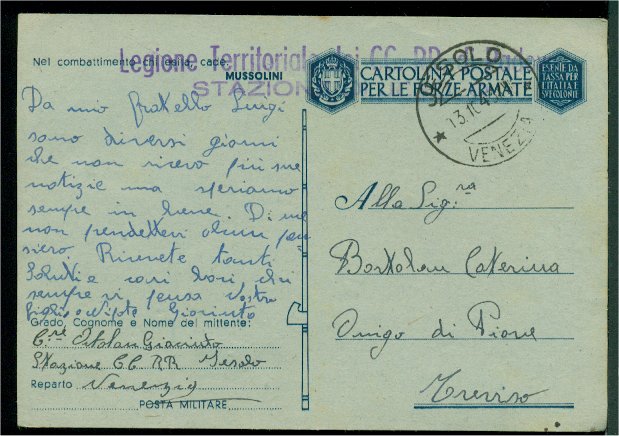 Nel combattimento chi esita, cade
MUSSOLINI
Legione Territoriale dei CC. RR.
STAZION
CARTOLINA POSTALE
PER LE FORZE ARMATE
ESENTE DA
TASSA PER
L'ITALIA E
SUE COLONIE
JESOLO
13.10.4
VENEZIA
Da mio fratello Luigi
sono diversi giorni
che non ricevo più sue
notizie ma speriamo
sempre in bene. Di me
non prendetevi alcun pen
siero Ricevete tanti
Saluti e cari baci chi
sempre vi pensa vostro
figlio e nipote Giacinto
Grado, Cognome e Nome del mittente:
C.re Giacinto
Stazione CC RR Jesolo
Reparto Venezia
POSTA MILITARE
Alla Sig.ra
Bortolan Caterina
Onigo di Piave
Treviso